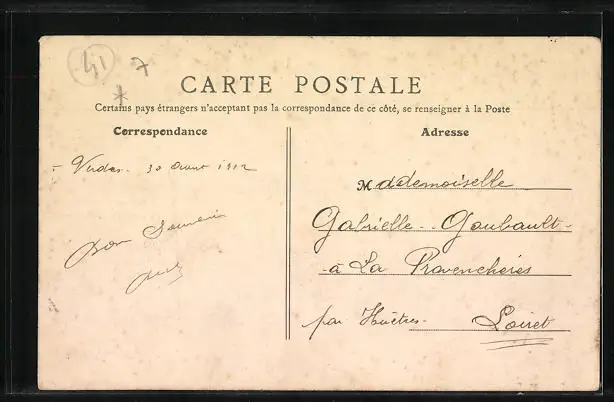 41 7
*
CARTE POSTALE
Certains pays étrangers n'acceptant pas la correspondance de ce côté, se renseigner à la Poste
Correspondance
Adresse
30 1912
Bon Souvenir
Mademoiselle
Gabrielle Goubault
à La Provenchères
par Huêtres Loiret